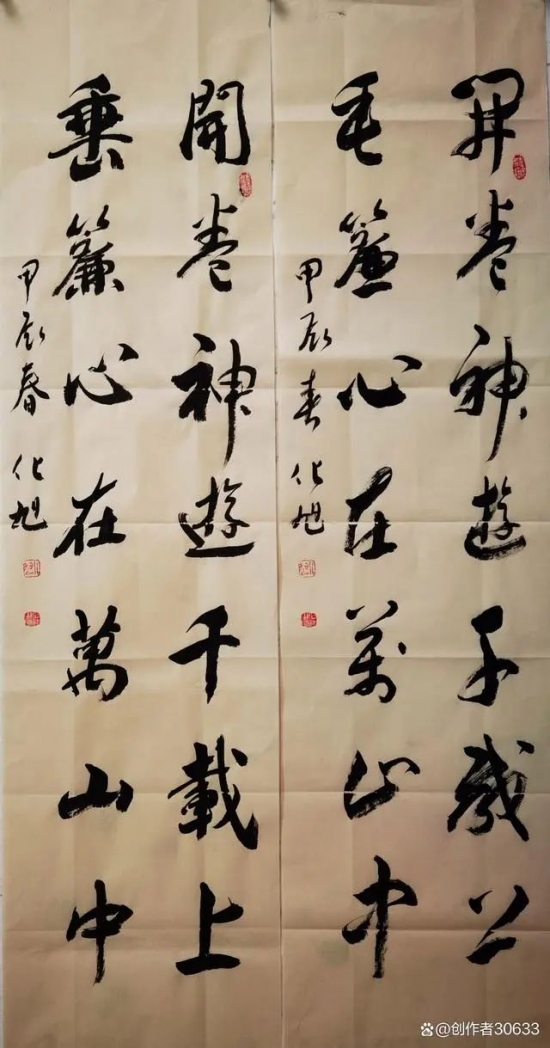 開卷神遊千載上
垂簾心在萬山中
甲辰春 化旭
開卷神遊千載上
垂簾心在萬山中
甲辰春 化旭
@创作者30633